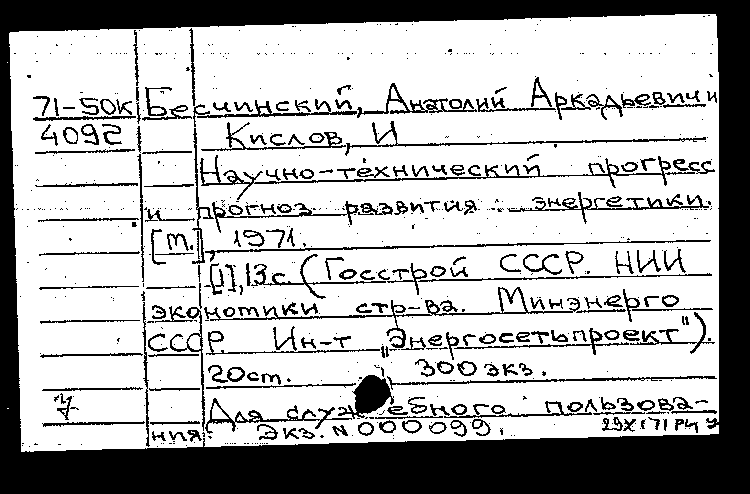 71-50к Бесчинский, Анатолий Аркадьевич и
4092 Кислов, И
Научно-технический прогресс
и прогноз развития энергетики.
[М.], 1971.
[1], 13 с. (Госстрой СССР. НИИ
экономики стр-ва. Минэнерго
СССР. Ин-т "Энергосетьпроект").
20 см. 300 экз.
Для служебного пользова-
ния. Экз. N 000099.